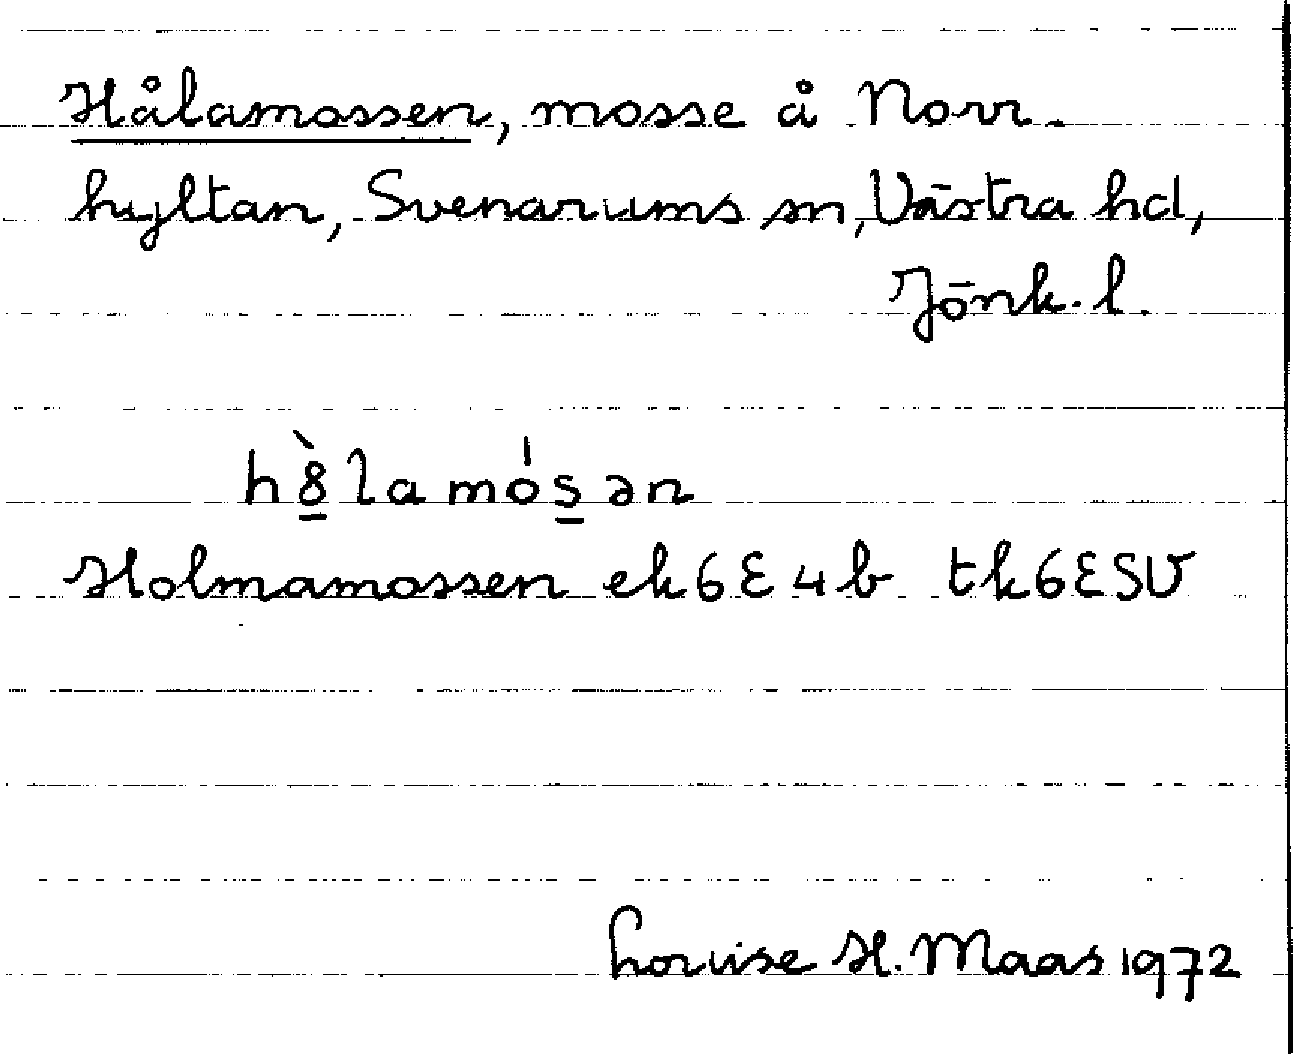 Hålamossen, mosse å Norr-
hyltan, Svenarums sn, Västra hd,
Jönk. l.
h8̠̀lamós̠ən
Holmamossen ek 6E4b tk 6ESV
Louise H. Maas 1972